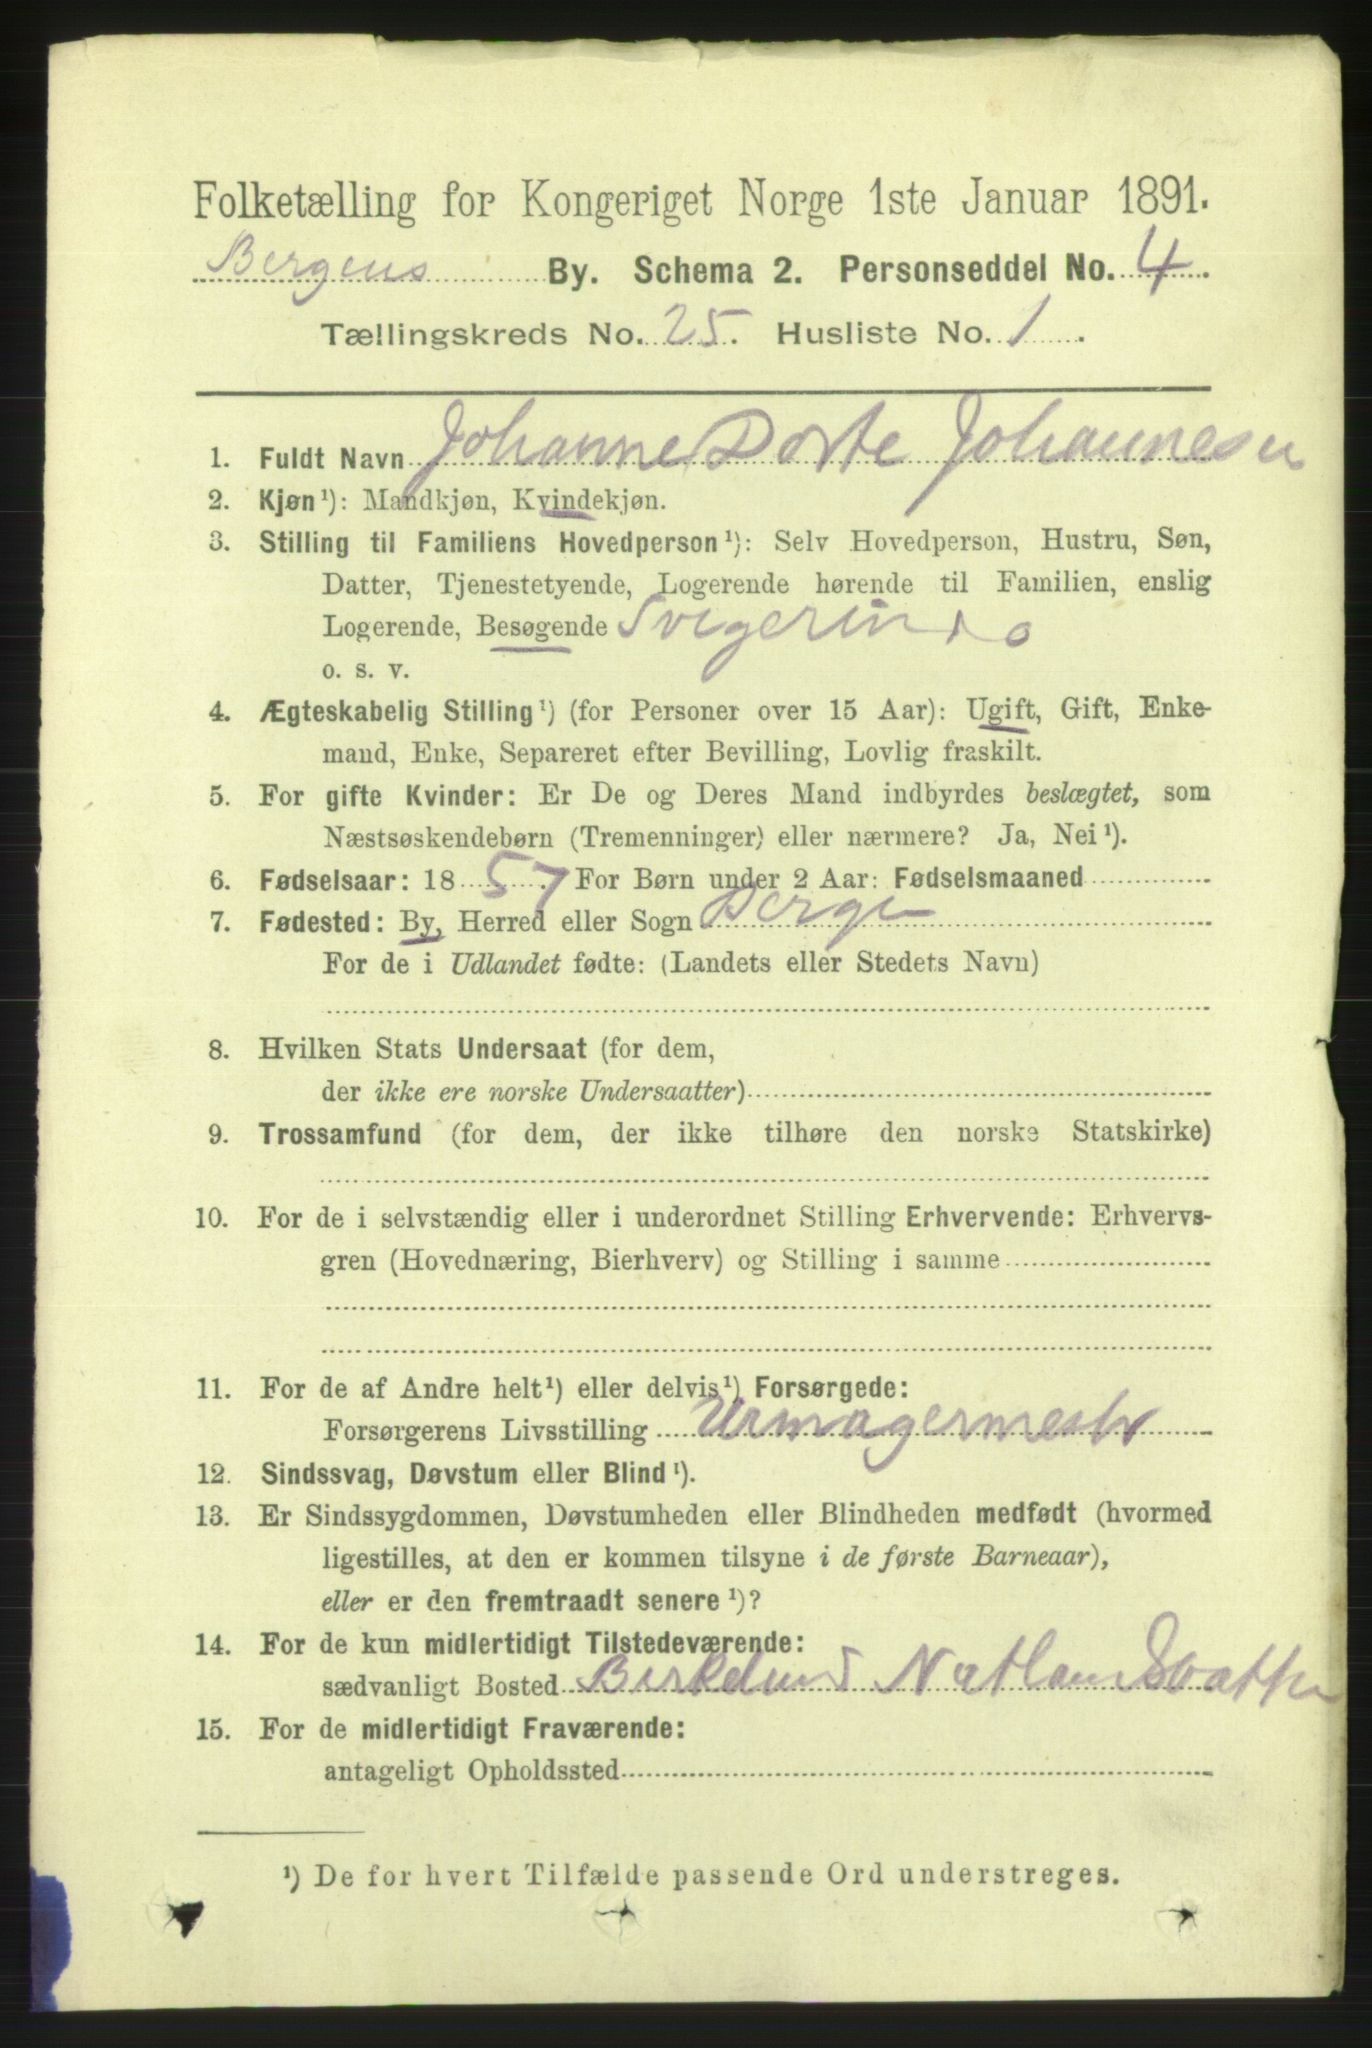 Folketælling for Kongeriget Norge 1ste Januar 1891.
Bergens By. Schema 2. Personseddel No. 4.
Tællingskreds No. 25. Husliste No. 1.
1. Fuldt Navn Johanne Dorte Johannesen
2. Kjøn ¹): Mandkjøn, Kvindekjøn.
3. Stilling til Familiens Hovedperson ¹): Selv Hovedperson, Hustru, Søn,
Datter, Tjenestetyende, Logerende hørende til Familien, enslig
Logerende, Besøgende Svigerinde
o. s. v.
4. Ægteskabelig Stilling ¹) (for Personer over 15 Aar): Ugift, Gift, Enke-
mand, Enke, Separeret efter Bevilling, Lovlig fraskilt.
5. For gifte Kvinder: Er De og Deres Mand indbyrdes beslægtet, som
Næstsøskendebørn (Tremenninger) eller nærmere? Ja, Nei ¹).
6. Fødselsaar: 18 57. For Børn under 2 Aar: Fødselsmaaned
7. Fødested: By, Herred eller Sogn Bergen
For de i Udlandet fødte: (Landets eller Stedets Navn)
8. Hvilken Stats Undersaat (for dem,
der ikke ere norske Undersaatter)
9. Trossamfund (for dem, der ikke tilhøre den norske Statskirke)
10. For de i selvstændig eller i underordnet Stilling Erhvervende: Erhvervs-
gren (Hovednæring, Bierhverv) og Stilling i samme
11. For de af Andre helt ¹) eller delvis ¹) Forsørgede:
Forsørgerens Livsstilling Urmagermester
12. Sindssvag, Døvstum eller Blind ¹).
13. Er Sindssygdommen, Døvstumheden eller Blindheden medfødt (hvormed
ligestilles, at den er kommen tilsyne i de første Barneaar),
eller er den fremtraadt senere ¹)?
14. For de kun midlertidigt Tilstedeværende:
sædvanligt Bosted Birkelund
15. For de midlertidigt Fraværende:
antageligt Opholdssted
¹) De for hvert Tilfælde passende Ord understreges.